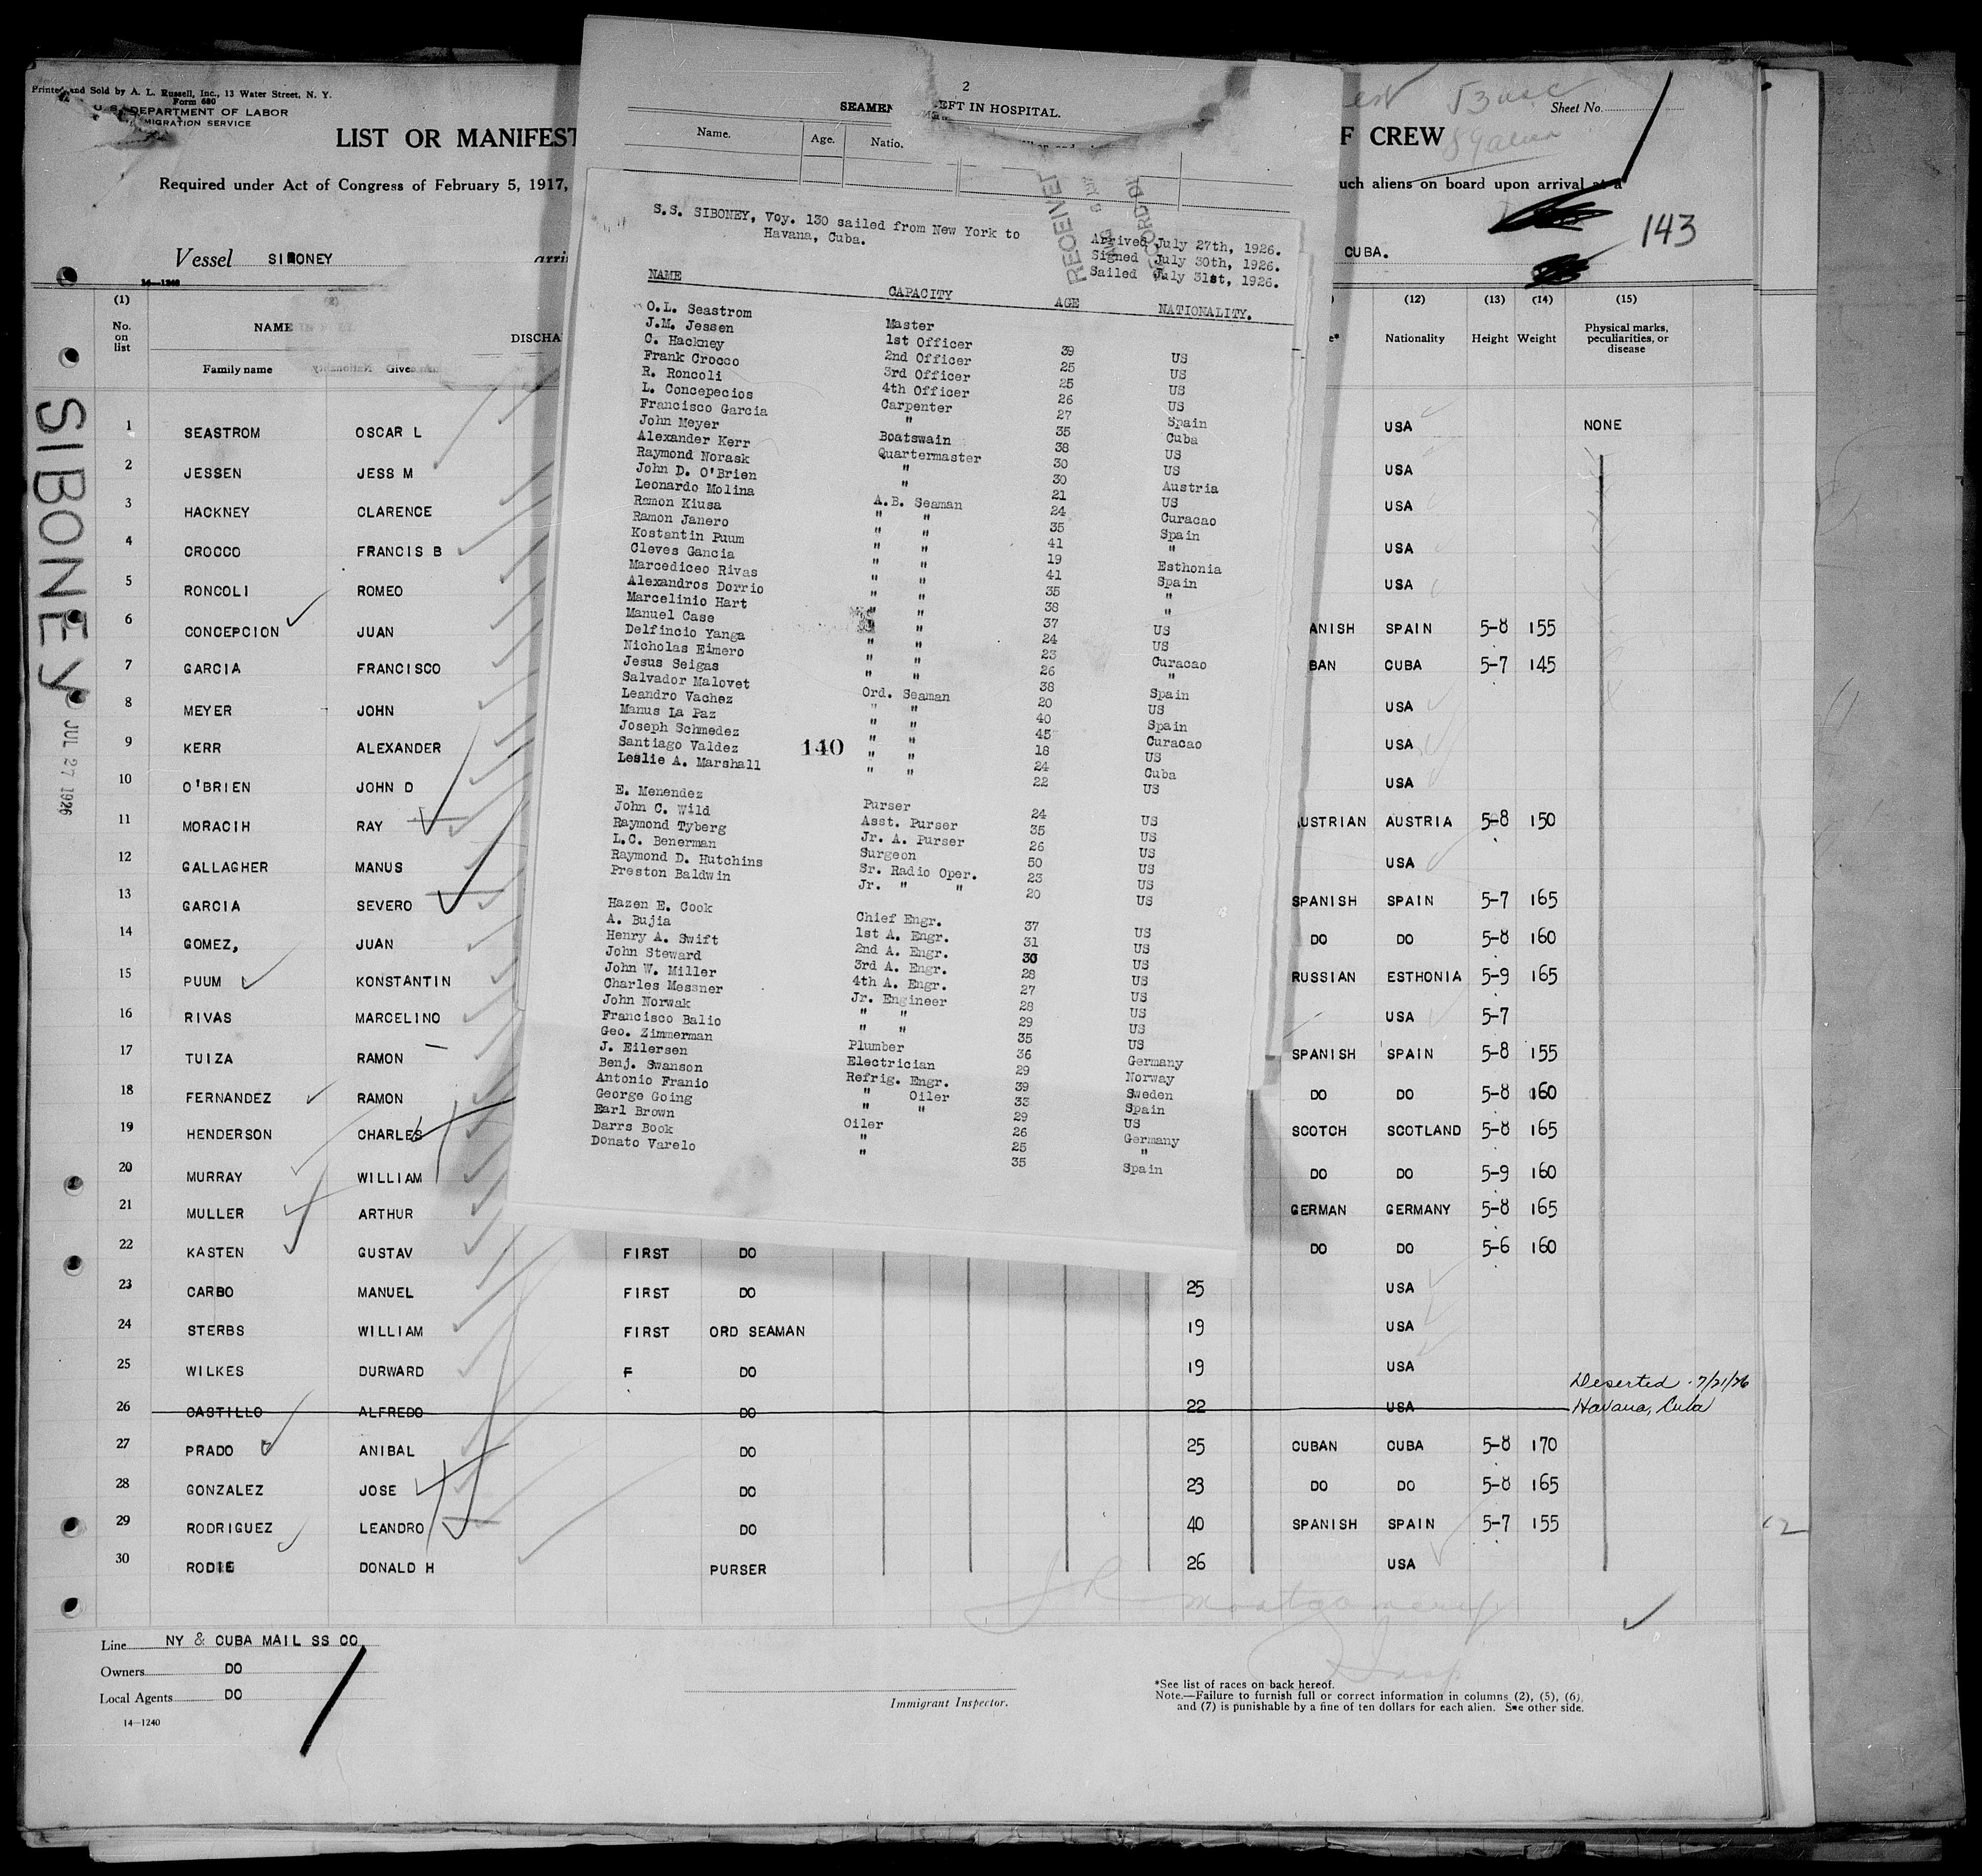 Printed and Sold by A. L. Russell, Inc., 13 Water Street, N. Y.
Form 680
U. S. DEPARTMENT OF LABOR
IMMIGRATION SERVICE
Sheet No.
LIST OR MANIFEST
F CREW
Required under Act of Congress of February 5, 1917,
uch aliens on board upon arrival at a
143
Vessel SIBONEY
CUBA.
14—1240
2
SEAMEN LEFT IN HOSPITAL.
Name. Age. Natio.
RECEIVED
S.S. SIBONEY, Voy. 130 sailed from New York to
Havana, Cuba.
Arrived July 27th, 1926.
Signed July 30th, 1926.
Sailed July 31st, 1926.
NAME CAPACITY AGE NATIONALITY.
O.L. Seastrom Master
J.M. Jessen 1st Officer 39 US
C. Hackney 2nd Officer 25 US
Frank Crocco 3rd Officer 25 US
R. Roncoli 4th Officer 26 US
L. Concepecios Carpenter 27 Spain
Francisco Garcia " 35 Cuba
John Meyer Boatswain 38 US
Alexander Kerr Quartermaster 30 US
Raymond Norask " 30 Austria
John D. O'Brien " 21 US
Leonardo Molina A.B. Seaman 24 Curacao
Ramon Kiusa " " 35 Spain
Ramon Janero " " 41 "
Kostantin Puum " " 19 Esthonia
Cleves Gancia " " 41 Spain
Marcediceo Rivas " " 35 "
Alexandros Dorrio " " 38 "
Marcelinio Hart " " 37 US
Manuel Case " " 24 US
Delfincio Yanga " " 23 Curacao
Nicholas Eimero " " 26 "
Jesus Seigas " " 38 Spain
Salvador Malovet Ord. Seaman 20 US
Leandro Vachez " " 40 Spain
Manus La Paz " " 45 Curacao
Joseph Schmedez " " 18 US
Santiago Valdez 140 " " 24 Cuba
Leslie A. Marshall " " 22 US
E. Menendez Purser 24 US
John C. Wild Asst. Purser 35 US
Raymond Tyberg Jr. A. Purser 26 US
L.C. Benerman Surgeon 50 US
Raymond D. Hutchins Sr. Radio Oper. 23 US
Preston Baldwin Jr. " " 20 US
Hazen E. Cook Chief Engr. 37 US
A. Bujia 1st A. Engr. 31 US
Henry A. Swift 2nd A. Engr. 30 US
John Steward 3rd A. Engr. 28 US
John W. Miller 4th A. Engr. 27 US
Charles Messner Jr. Engineer 28 US
John Norwak " " 29 US
Francisco Balio " " 35 US
Geo. Zimmerman Plumber 36 Germany
J. Eilersen Electrician 29 Norway
Benj. Swanson Refrig. Engr. 39 Sweden
Antonio Franio " Oiler 33 Spain
George Going " " 29 US
Earl Brown Oiler 26 Germany
Darrs Book " 25 "
Donato Varelo " 35 Spain
SIBONEY
JUL 27 1926
(1) (12) (13) (14) (15)
No. on list NAME DISCHA Nationality Height Weight Physical marks, peculiarities, or disease
Family name Give
1 SEASTROM OSCAR L USA NONE
2 JESSEN JESS M USA
3 HACKNEY CLARENCE USA
4 CROCCO FRANCIS B USA
5 RONCOLI ROMEO USA
6 CONCEPCION JUAN ANISH SPAIN 5-8 155
7 GARCIA FRANCISCO BAN CUBA 5-7 145
8 MEYER JOHN USA
9 KERR ALEXANDER USA
10 O'BRIEN JOHN D USA
11 MORACIH RAY USTRIAN AUSTRIA 5-8 150
12 GALLAGHER MANUS USA
13 GARCIA SEVERO SPANISH SPAIN 5-7 165
14 GOMEZ, JUAN DO DO 5-8 160
15 PUUM KONSTANTIN RUSSIAN ESTHONIA 5-9 165
16 RIVAS MARCELINO USA 5-7
17 TUIZA RAMON SPANISH SPAIN 5-8 155
18 FERNANDEZ RAMON DO DO 5-8 160
19 HENDERSON CHARLES SCOTCH SCOTLAND 5-8 165
20 MURRAY WILLIAM DO DO 5-9 160
21 MULLER ARTHUR GERMAN GERMANY 5-8 165
22 KASTEN GUSTAV FIRST DO DO DO 5-6 160
23 CARBO MANUEL FIRST DO 25 USA
24 STERBS WILLIAM FIRST ORD SEAMAN 19 USA
25 WILKES DURWARD F DO 19 USA
26 CASTILLO ALFREDO DO 22 USA Deserted 7/21/26 Havana, Cuba
27 PRADO ANIBAL DO 25 CUBAN CUBA 5-8 170
28 GONZALEZ JOSE DO 23 DO DO 5-8 165
29 RODRIGUEZ LEANDRO DO 40 SPANISH SPAIN 5-7 155
30 RODIE DONALD H PURSER 26 USA
Line NY & CUBA MAIL SS CO.
Owners DO
Local Agents DO
14—1240
Immigrant Inspector.
*See list of races on back hereof.
Note.—Failure to furnish full or correct information in columns (2), (5), (6),
and (7) is punishable by a fine of ten dollars for each alien. See other side.